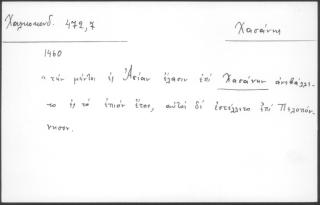 Χαλκοκονδ. 472,7
Χασάνης
1460
"τὴν μέντοι ἐς Ἀσίαν ἔλασιν ἐπὶ Χασάνην ἀνεβάλλε-
το ἐς τὸ ἐπιὸν ἔτος, αὐτὸς δὲ ἐστέλλετο ἐπὶ Πελοπόν-
νησον.